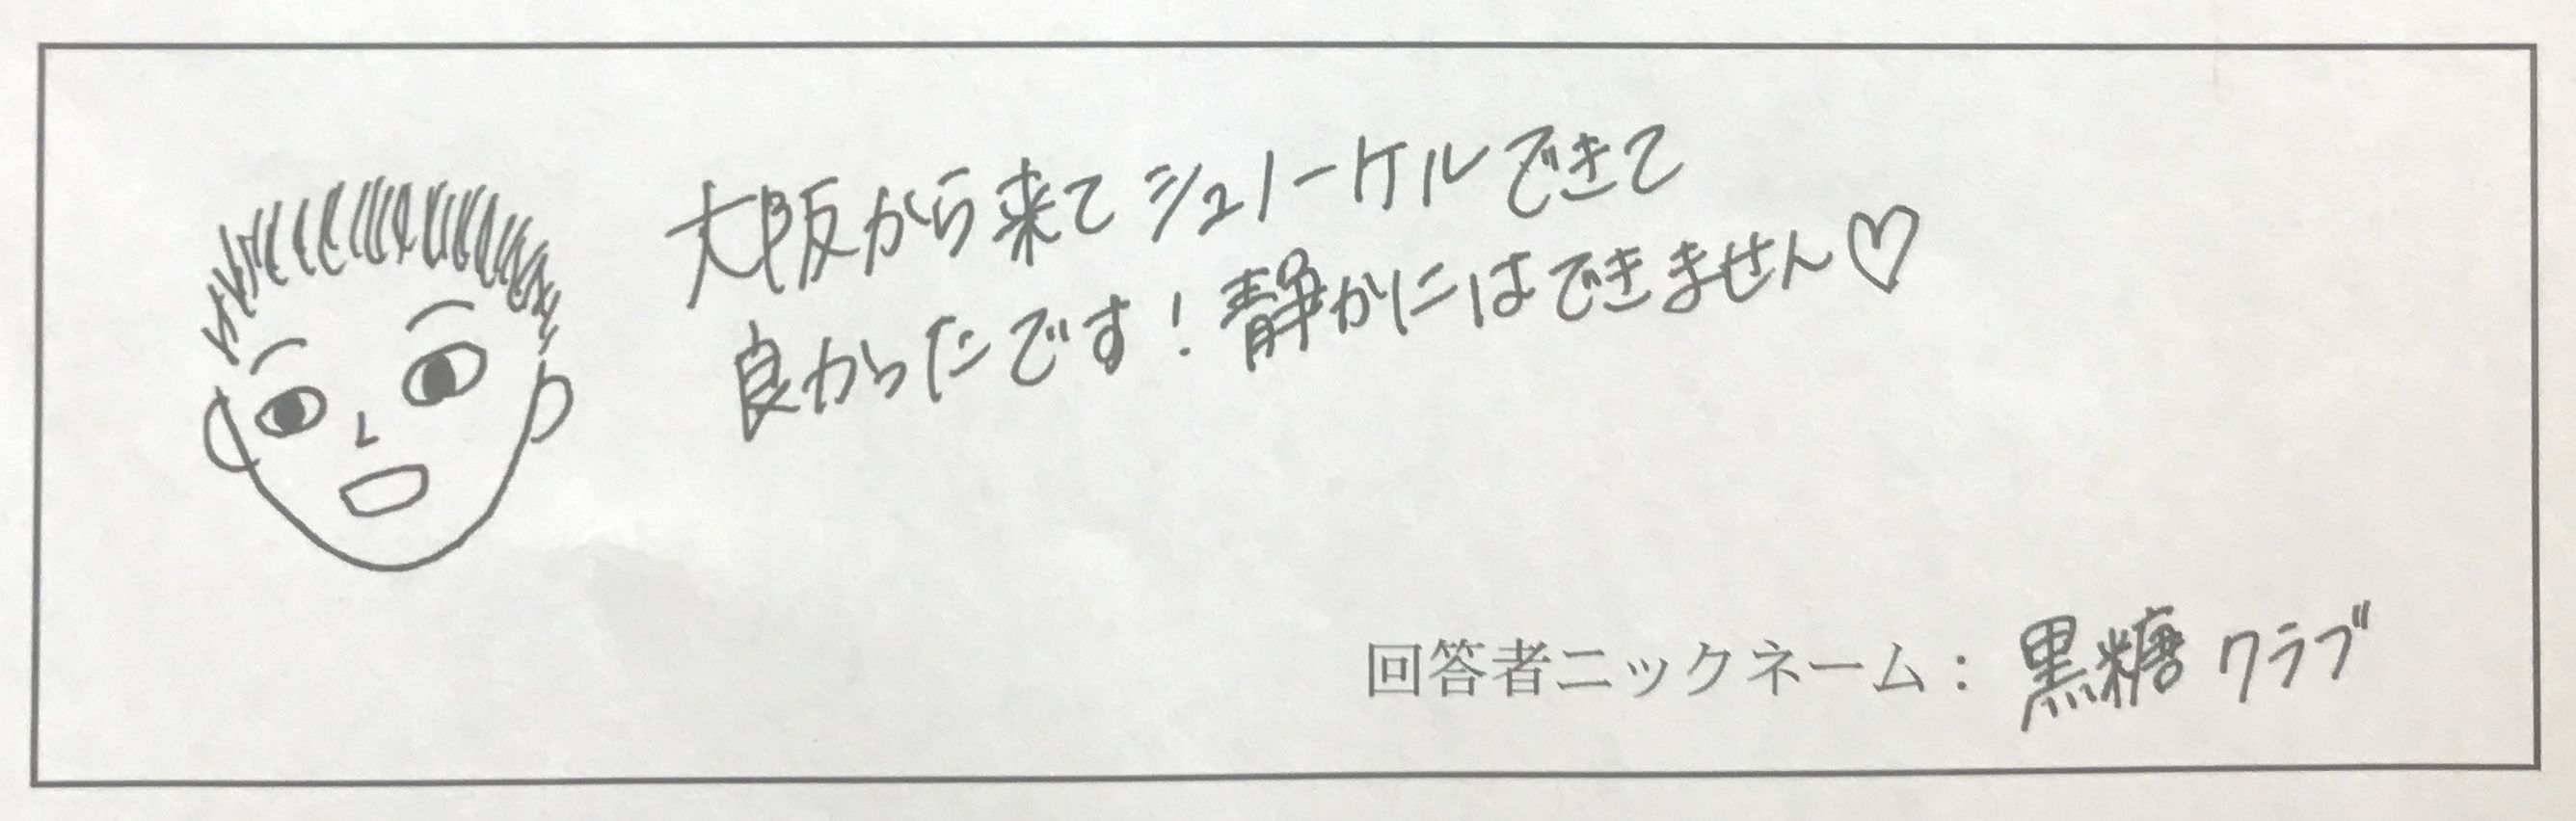 大阪から来てシュノーケルできて
良かったです！静かにはできません♡
回答者ニックネーム：黒糖クラブ